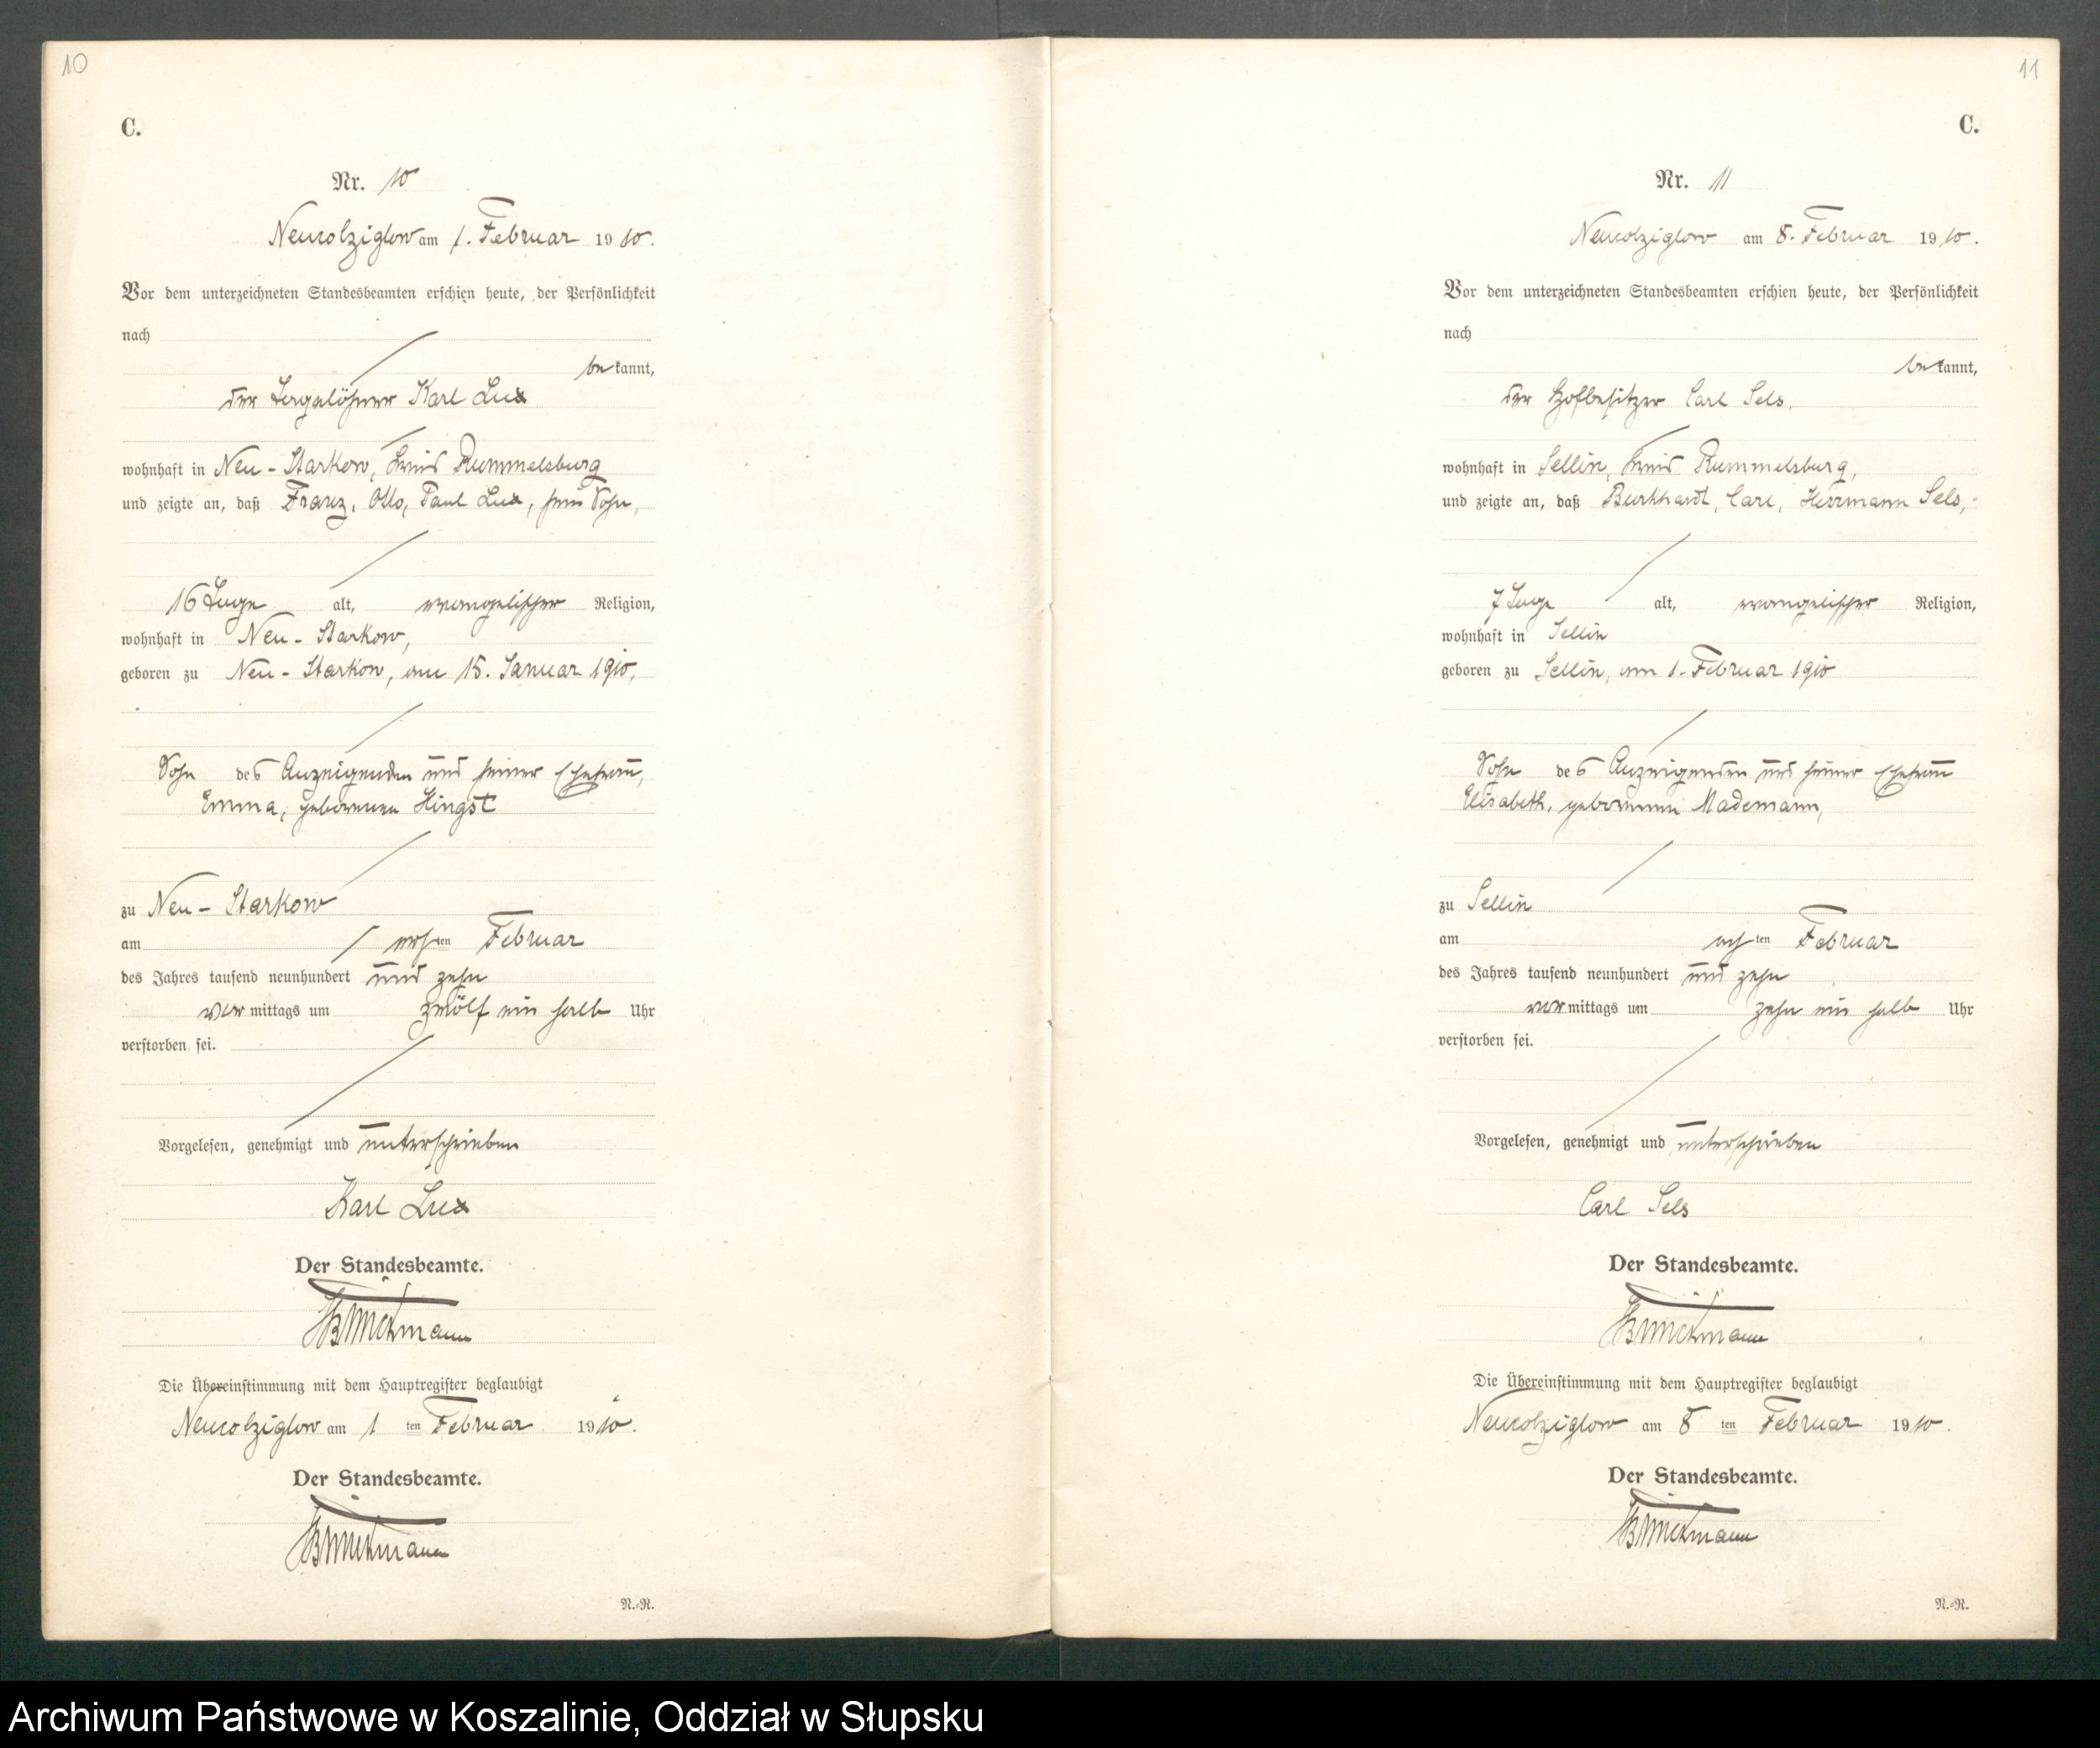 10
C.
Nr. 10
Neukolziglow am 1. Februar 1910.
Vor dem unterzeichneten Standesbeamten erschien heute, der Persönlichkeit
nach
bekannt,
der Tagelöhner Karl Lux
wohnhaft in Neu-Starkow, Kreis Rummelsburg
und zeigte an, daß Franz, Otto, Paul Lux, sein Sohn,
16 Tage alt, evangelischer Religion,
wohnhaft in Neu-Starkow,
geboren zu Neu-Starkow, am 15. Januar 1910,
Sohn des Anzeigenden und seiner Ehefrau,
Emma, geborenen Hingst
zu Neu-Starkow
am ersten Februar
des Jahres tausend neunhundert und zehn
vormittags um zwölf ein halb Uhr
verstorben sei.
Vorgelesen, genehmigt und unterschrieben
Karl Lux
Der Standesbeamte.
Die Übereinstimmung mit dem Hauptregister beglaubigt
Neukolziglow am 1 ten Februar 1910.
Der Standesbeamte.
N.=N.
11
C.
Nr. 11
Neukolziglow am 8. Februar 1910.
Vor dem unterzeichneten Standesbeamten erschien heute, der Persönlichkeit
nach
bekannt,
der Hofbesitzer Carl Sels.
wohnhaft in Sellin, Kreis Rummelsburg,
und zeigte an, daß Burkhardt, Carl, Herrmann Sels,
7 Tage alt, evangelischer Religion,
wohnhaft in Sellin
geboren zu Sellin, am 1. Februar 1910
Sohn des Anzeigenden und seiner Ehefrau
Elisabeth, geborenen Mademann,
zu Sellin
am achten Februar
des Jahres tausend neunhundert und zehn
vormittags um zehn ein halb Uhr
verstorben sei.
Vorgelesen, genehmigt und unterschrieben
Carl Sels
Der Standesbeamte.
Die Übereinstimmung mit dem Hauptregister beglaubigt
Neukolziglow am 8 ten Februar 1910.
Der Standesbeamte.
N.=N.
Archiwum Państwowe w Koszalinie, Oddział w Słupsku